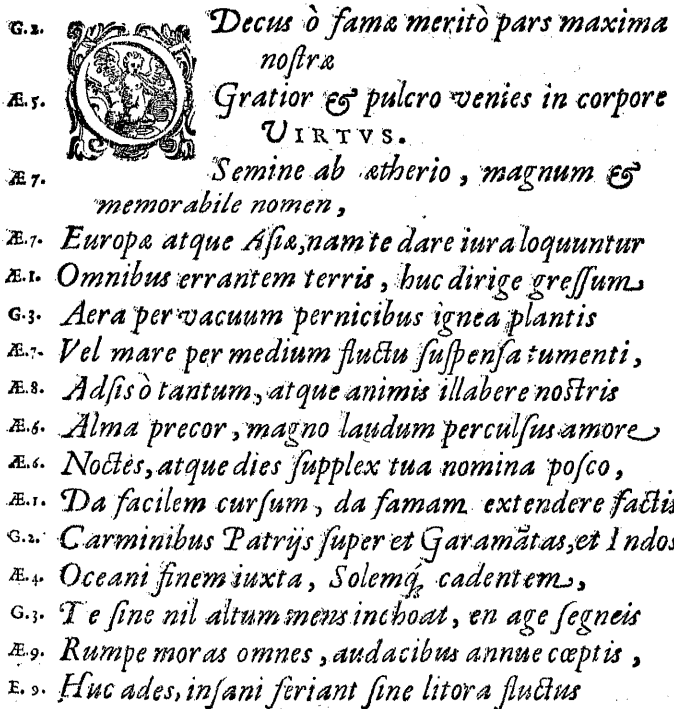 G.2. O Decus ò famæ meritò pars maxima
noſtræ
Æ.5. Gratior & pulcro venies in corpore
VIRTVS.
Æ.7. Semine ab ætherio, magnum &
memorabile nomen,
Æ.7. Europæ atque Aſiæ, nam te dare iura loquuntur
Æ.1. Omnibus errantem terris, huc dirige greſſum
G.3. Aera per vacuum pernicibus ignea plantis
Æ.7. Vel mare per medium fluctu ſuſpenſa tumenti,
Æ.8. Adſis ò tantum, atque animis illabere noſtris
Æ.6. Alma precor, magno laudum perculſus amore
Æ.6. Noctes, atque dies ſupplex tua nomina poſco,
Æ.1. Da facilem curſum, da famam extendere factis
G.2. Carminibus Patrijs ſuper et Garamãtas, et Indos
Æ.4. Oceani finem iuxta, Solemq́; cadentem,
G.3. Te ſine nil altum mens inchoat, en age ſegneis
Æ.9. Rumpe moras omnes, audacibus annue cœptis,
E.9. Huc ades, inſani feriant ſine litora fluctus